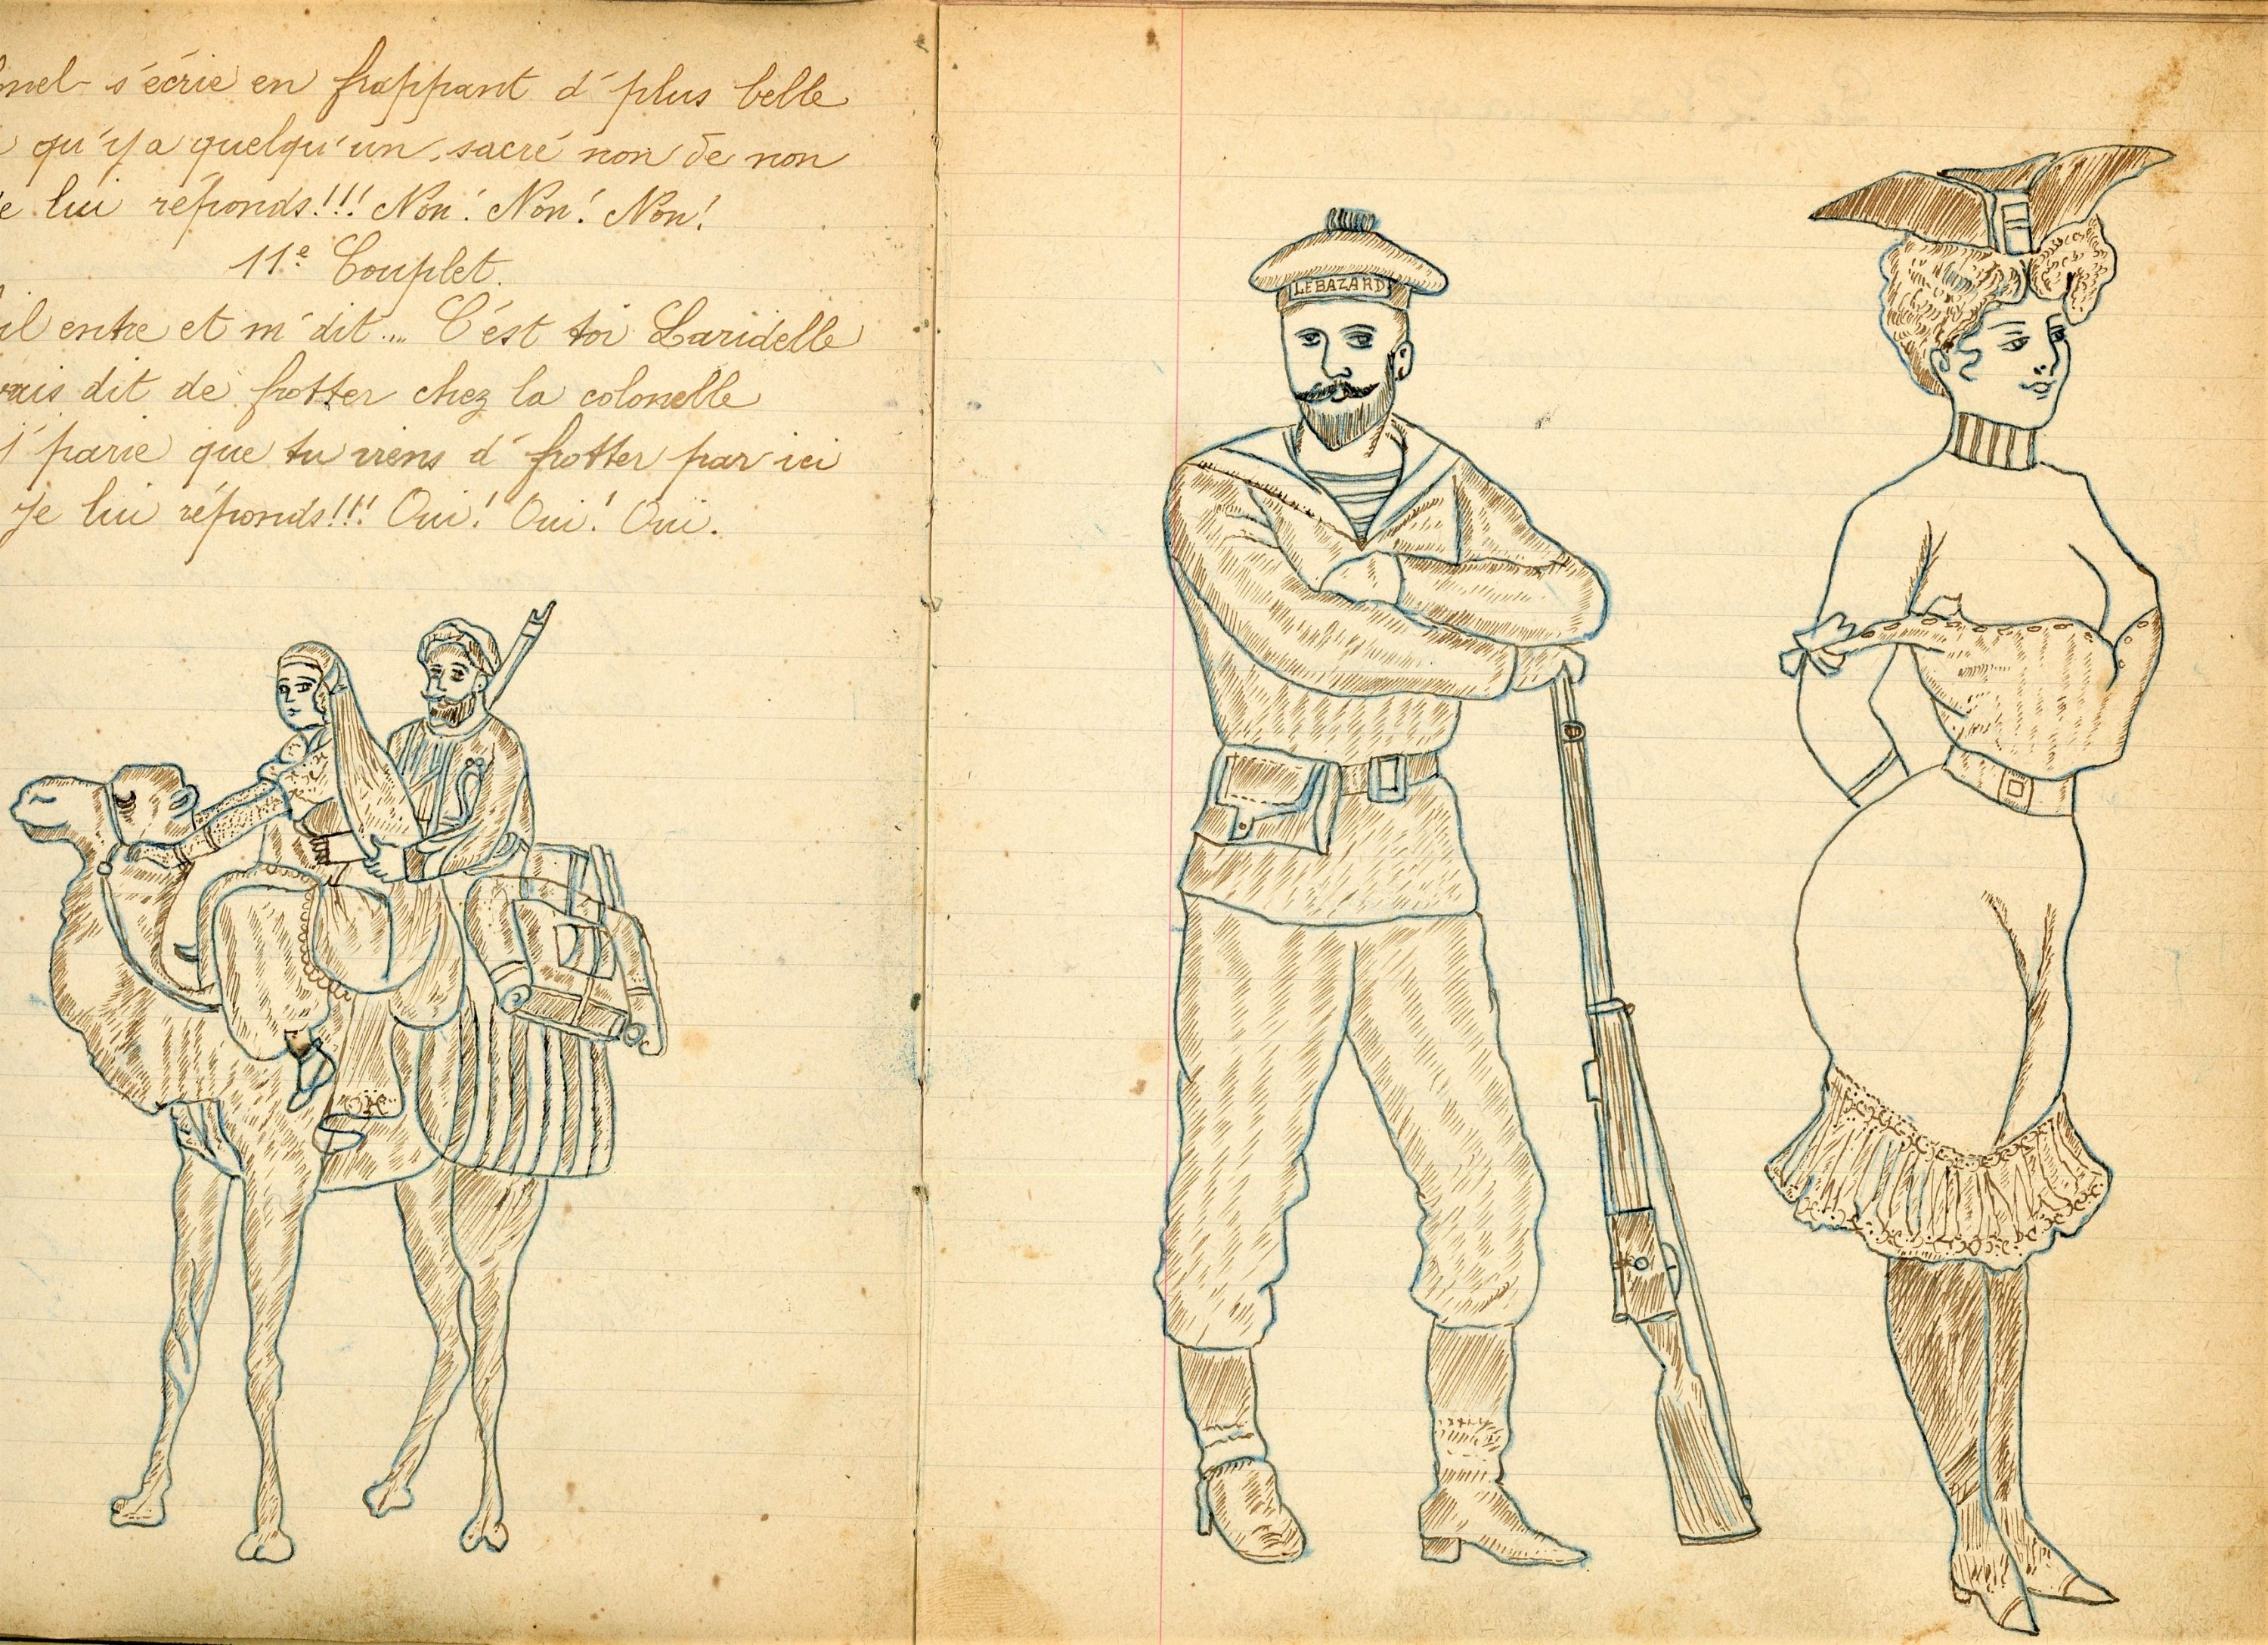 onel s'écrie en frappant d'plus belle
qu'y a quelqu'un, sacré non de non
e lui réponds!!! Non! Non! Non!
11e Couplet.
il entre et m'dit.... C'est toi Laridelle
vais dit de frotter chez la colonelle
j'parie que tu viens d'frotter par ici
Je lui réponds!!! Oui! Oui! Oui.
LEBAZARD